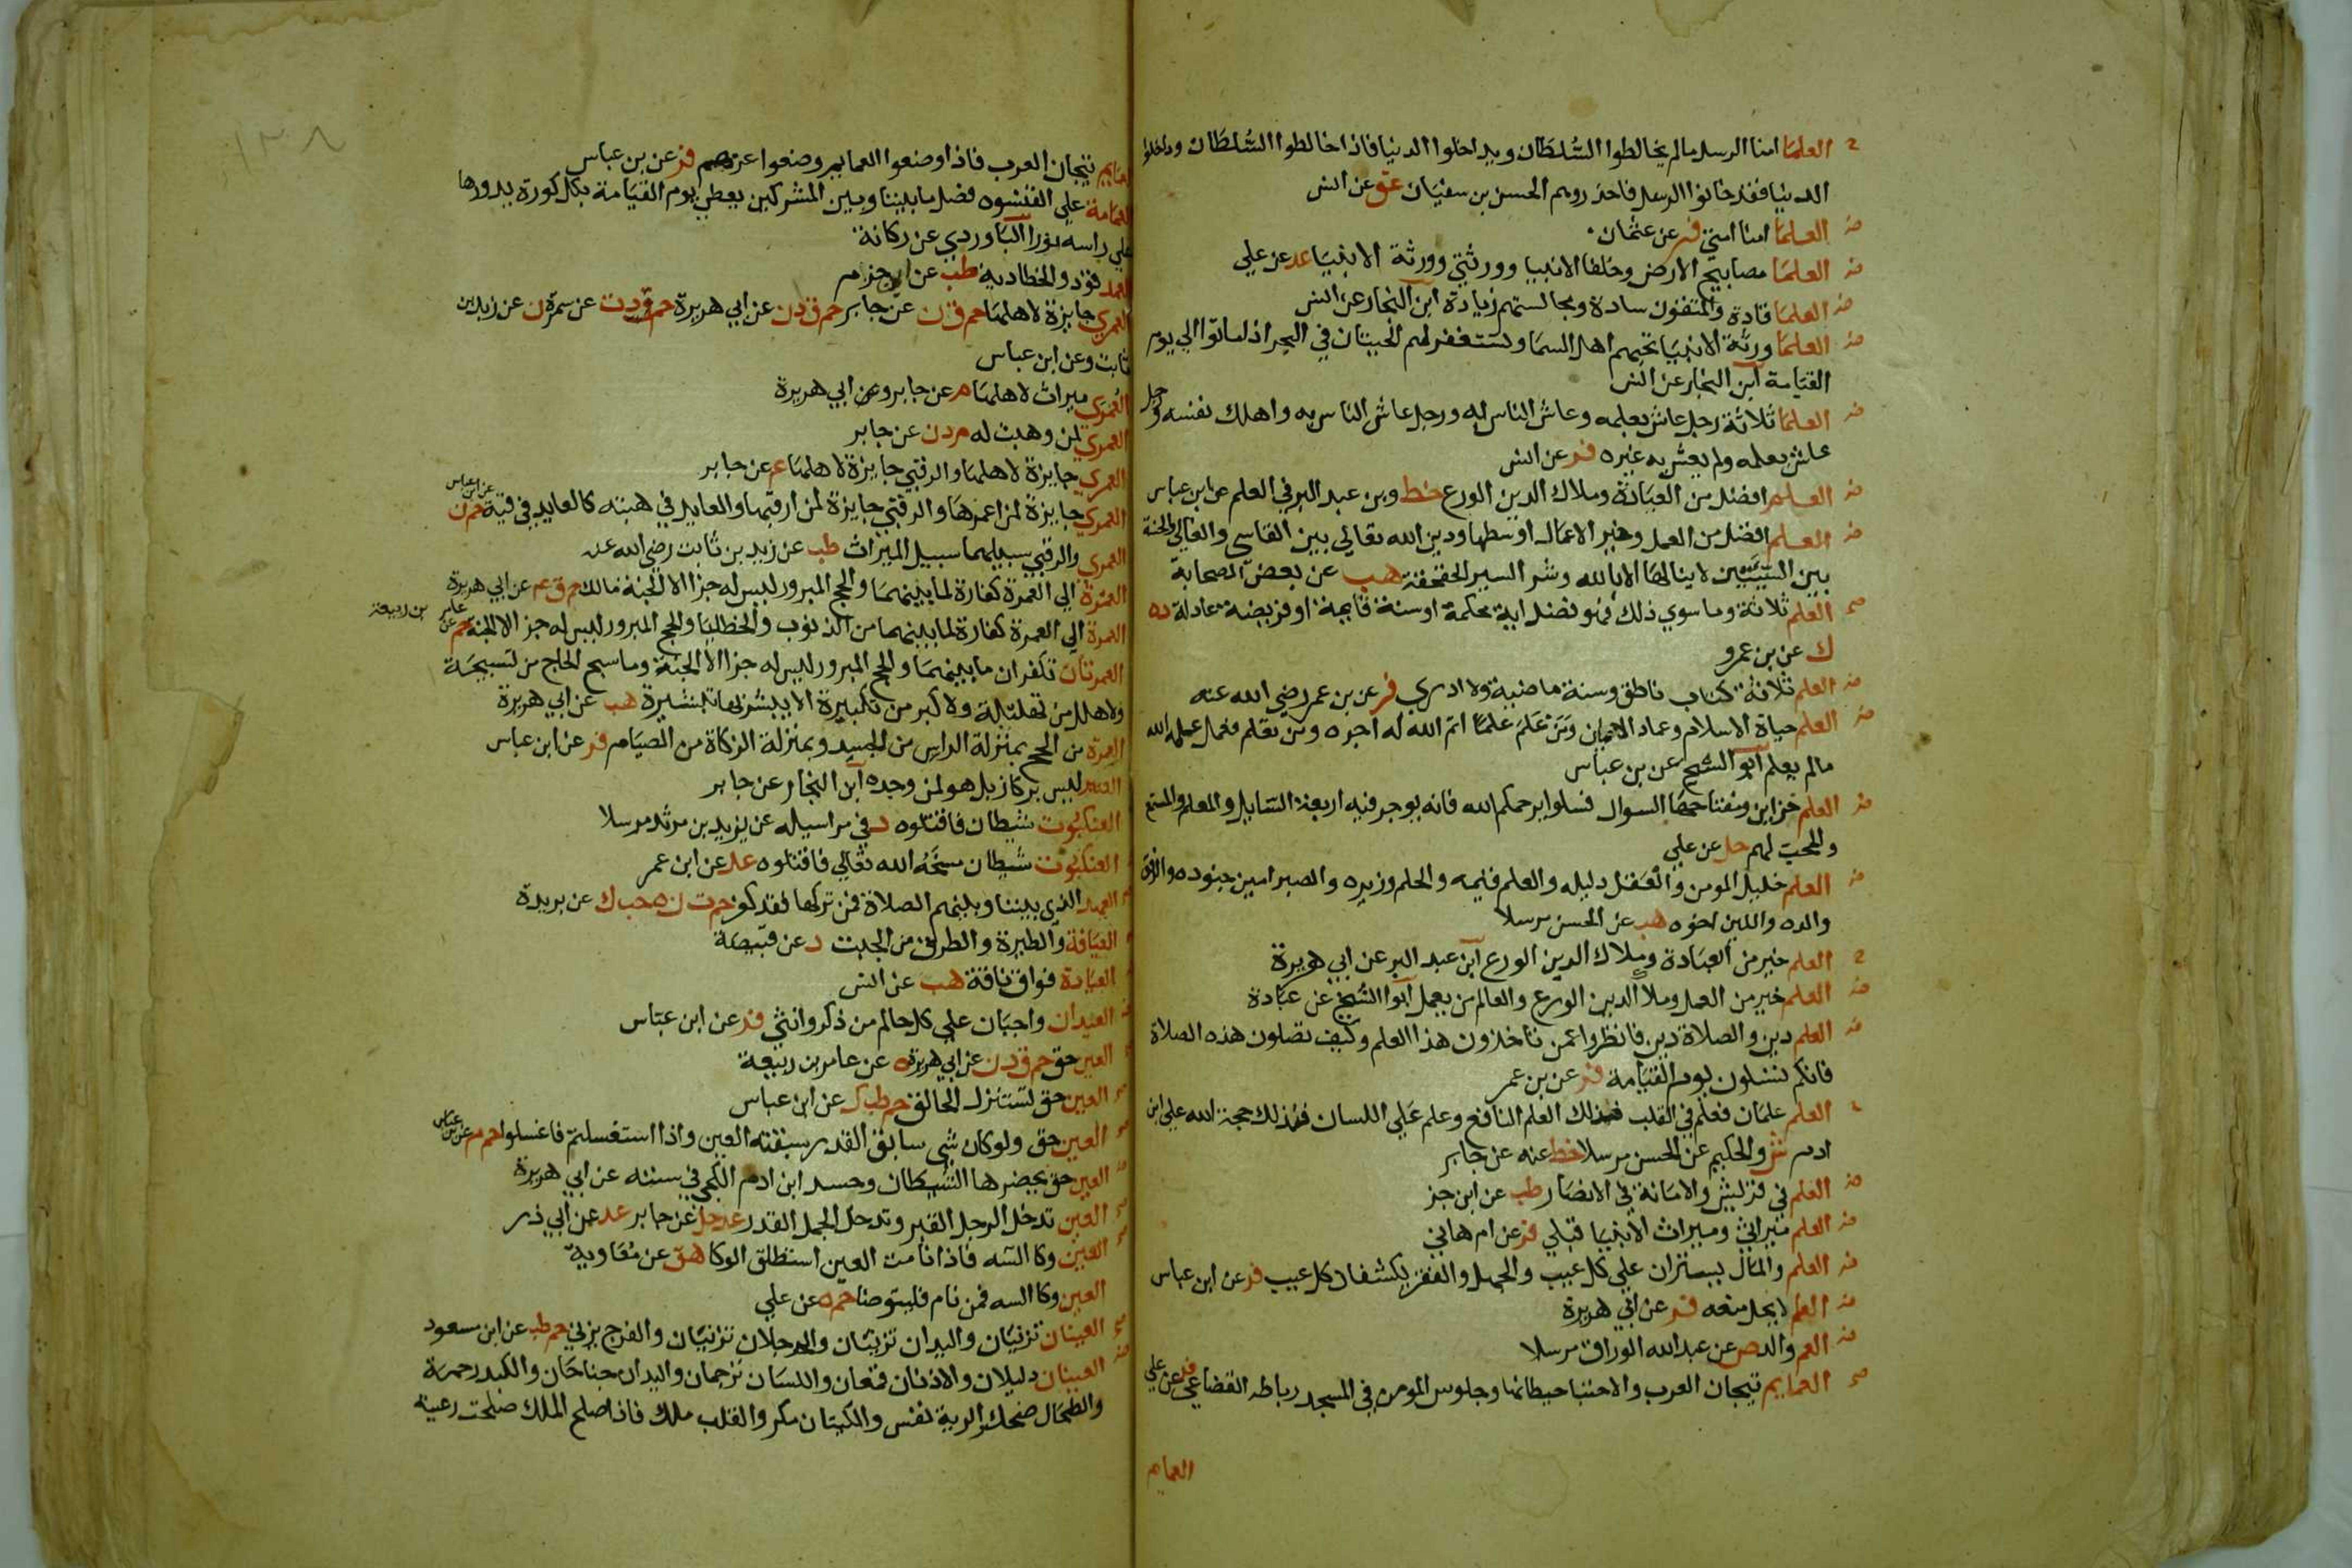 العلما امنا الرسل مالم يخالطوا السلطان ويداخلوا الدنيا فاذا خالطوا السلطان وداخلوا
الدنيا فقد خانوا الرسل فاحذروهم الحسن بن سفيان عق عن انس
العلما امنا امتي فر عن عثمان
العلما مصابيح الارض وخلفا الانبيا وورثتي وورثة الانبيا عد عن علي
العلما قادة والمتقون سادة ومجالستهم زيادة ابن النجار عن انس
العلما ورثة الانبيا تحبهم اهل السما وتستغفر لهم الحيتان في البحر اذا ماتوا الي يوم
القيامة ابن النجار عن انس
العلما ثلاثة رجل عاش بعلمه وعاش الناس به ورجل عاش الناس به واهلك نفسه ورجل
عاش بعلمه ولم يعش به غيره فر عن انس
العلم افضل من العبادة وملاك الدين الورع خط وبن عبد البر في العلم عن ابن عباس
العلم افضل من العمل وخير الاعمال اوسطها ودين الله تعالي بين القاسي والغالي والحسنة
بين السيئتين لا ينالها الا بالله وشر السير الحقحقة هب عن بعض الصحابة
العلم ثلاثة وما سوي ذلك فهو فضل اية محكمة او سنة قايمة او فريضة عادلة د ه
ك عن بن عمرو
العلم ثلاثة كتاب ناطق وسنة ماضية ولا ادري فر عن بن عمر رضي الله عنه
العلم حياة الاسلام وعماد الايمان ومن علم علما اتم الله له اجره ومن تعلم فعمل علمه الله
مالم يعلم ابو الشيخ عن بن عباس
العلم خزاين ومفتاحها السوال فسلوا يرحمكم الله فانه يوجر فيه اربعة السايل والمعلم والمستمع
والمحب لهم حل عن علي
العلم خليل المومن والعقل دليله والعلم قيمه والحلم وزيره والصبر امير جنوده والرفق
والده واللين اخوه هب عن الحسن مرسلا
العلم خير من العبادة وملاك الدين الورع ابن عبد البر عن ابي هريرة
العلم خير من العمل وملا الدين الورع والعالم من يعمل ابو الشيخ عن عبادة
العلم دين والصلاة دين فانظروا عمن تاخذون هذا العلم وكيف تصلون هذه الصلاة
فانكم تسئلون يوم القيامة فر عن بن عمر
العلم علمان فعلم في القلب فذلك العلم النافع وعلم علي اللسان فذلك حجة الله علي ابن
ادم ش والحكيم عن الحسن مرسلا خط عنه عن جابر
العلم في قريش والامانة في الانصار طب عن ابن جز
العلم ميراثي وميراث الانبيا قبلي فر عن ام هاني
العلم والمال يستران علي كل عيب والجهل والفقر يكشفان كل عيب فر عن ابن عباس
العلم لا يحل منعه فر عن ابي هريرة
العم والد ص عن عبد الله الوراق مرسلا
العمايم تيجان العرب والاحتبا حيطانها وجلوس المومن في المسجد رباطه القضاعي فر عن علي
العمايم
١٣٨
العمايم تيجان العرب فاذا وضعوا العمايم وضعوا عزهم فر عن بن عباس
العمامة علي القلنسوه فصل ما بيننا وبين المشركين يعطي يوم القيامة بكل كورة يدورها
علي راسه نورا الباوردي عن ركانة
العمد قود والخطا دية طب عن ابن حزم
العمري جايزة لاهلها حم ق ن عن جابر حم ق د ن عن ابي هريرة حم د ت عن سمرة ن عن زيد بن
ثابت وعن ابن عباس
العمري ميراث لاهلها م عن جابر وعن ابي هريرة
العمري لمن وهبت له م د ن عن جابر
العمري جايزة لاهلها والرقبي جايزة لاهلها عم عن جابر
العمري جايزة لمن اعمرها والرقبي جايزة لمن ارقبها والعايد في هبته كالعايد في قيئه حم ن عن ابن عباس
العمري والرقبي سبيلهما سبيل الميراث طب عن زيد بن ثابت رضي الله عنه
العمرة الي العمرة كفارة لما بينهما والحج المبرور ليس له جزا الا الجنة مالك حم ق عم عن ابي هريرة
العمرة الي العمرة كفارة لما بينهما من الذنوب والخطايا والحج المبرور ليس له جزا الا الجنة حم عن عامر بن ربيعة
العمرتان تكفران ما بينهما والحج المبرور ليس له جزا الا الجنة وما سبح الحاج من تسبيحة
ولا هلل من تهليلة ولا كبر من تكبيرة الا يبشر بها تبشيرة هب عن ابي هريرة
العمرة من الحج بمنزلة الراس من الجسد وبمنزلة الزكاة من الصيام فر عن ابن عباس
العنبر ليس بركاز بل هو لمن وجده ابن النجار عن جابر
العنكبوت شيطان فاقتلوه د في مراسيله عن يزيد بن مرثد مرسلا
العنكبوت شيطان مسخه الله تعالي فاقتلوه عد عن ابن عمر
العهد الذي بيننا وبينهم الصلاة فمن تركها فقد كفر حم ت ن ه حب ك عن بريدة
العيافة والطيرة والطرق من الجبت د عن قبيصة
العيادة فواق ناقة هب عن انس
العيدان واجبان علي كل حالم من ذكر وانثي فر عن ابن عباس
العين حق حم ق د ن عن ابي هريرة ه عن عامر بن ربيعة
العين حق تستنزل الحالق حم طب ك عن ابن عباس
العين حق ولو كان شي سابق القدر سبقته العين واذا استغسلتم فاغسلوا حم م عن بن عباس
العين حق يحضرها الشيطان وحسد ابن ادم الكجي في سننه عن ابي هريرة
العين تدخل الرجل القبر وتدخل الجمل القدر عد حل عن جابر عد عن ابي ذر
العين وكا السه فاذا نامت العين استطلق الوكا هق عن معاوية
العين وكا السه فمن نام فليتوضا حم ه عن علي
العينان تزنيان واليدان تزنيان والرجلان تزنيان والفرج يزني حم طب عن ابن مسعود
العينان دليلان والاذنان قمعان واللسان ترجمان واليدان جناحان والكبد رحمة
والطحال ضحك والرية نفس والكليتان مكر والقلب ملك فاذا صلح الملك صلحت رعيته